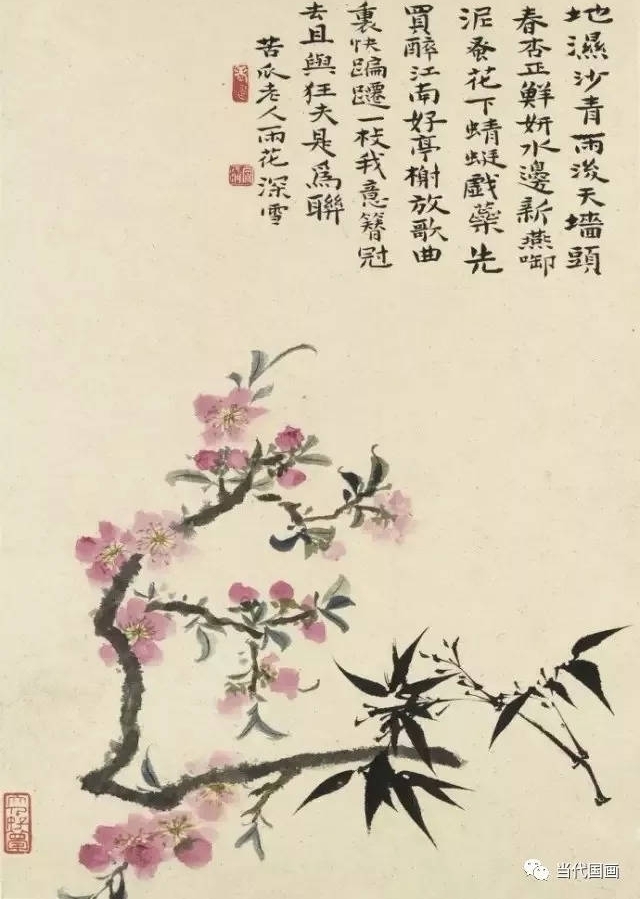 地濕沙青雨後天墻頭
春杏正鮮妍水邊新燕啣
泥蚤花下蜻蜓戲藥先
買醉江南好亭榭放歌曲
裏快蹁躚一枝我意簪冠
去且與狂夫是爲聯
苦瓜老人雨花深雪
当代国画